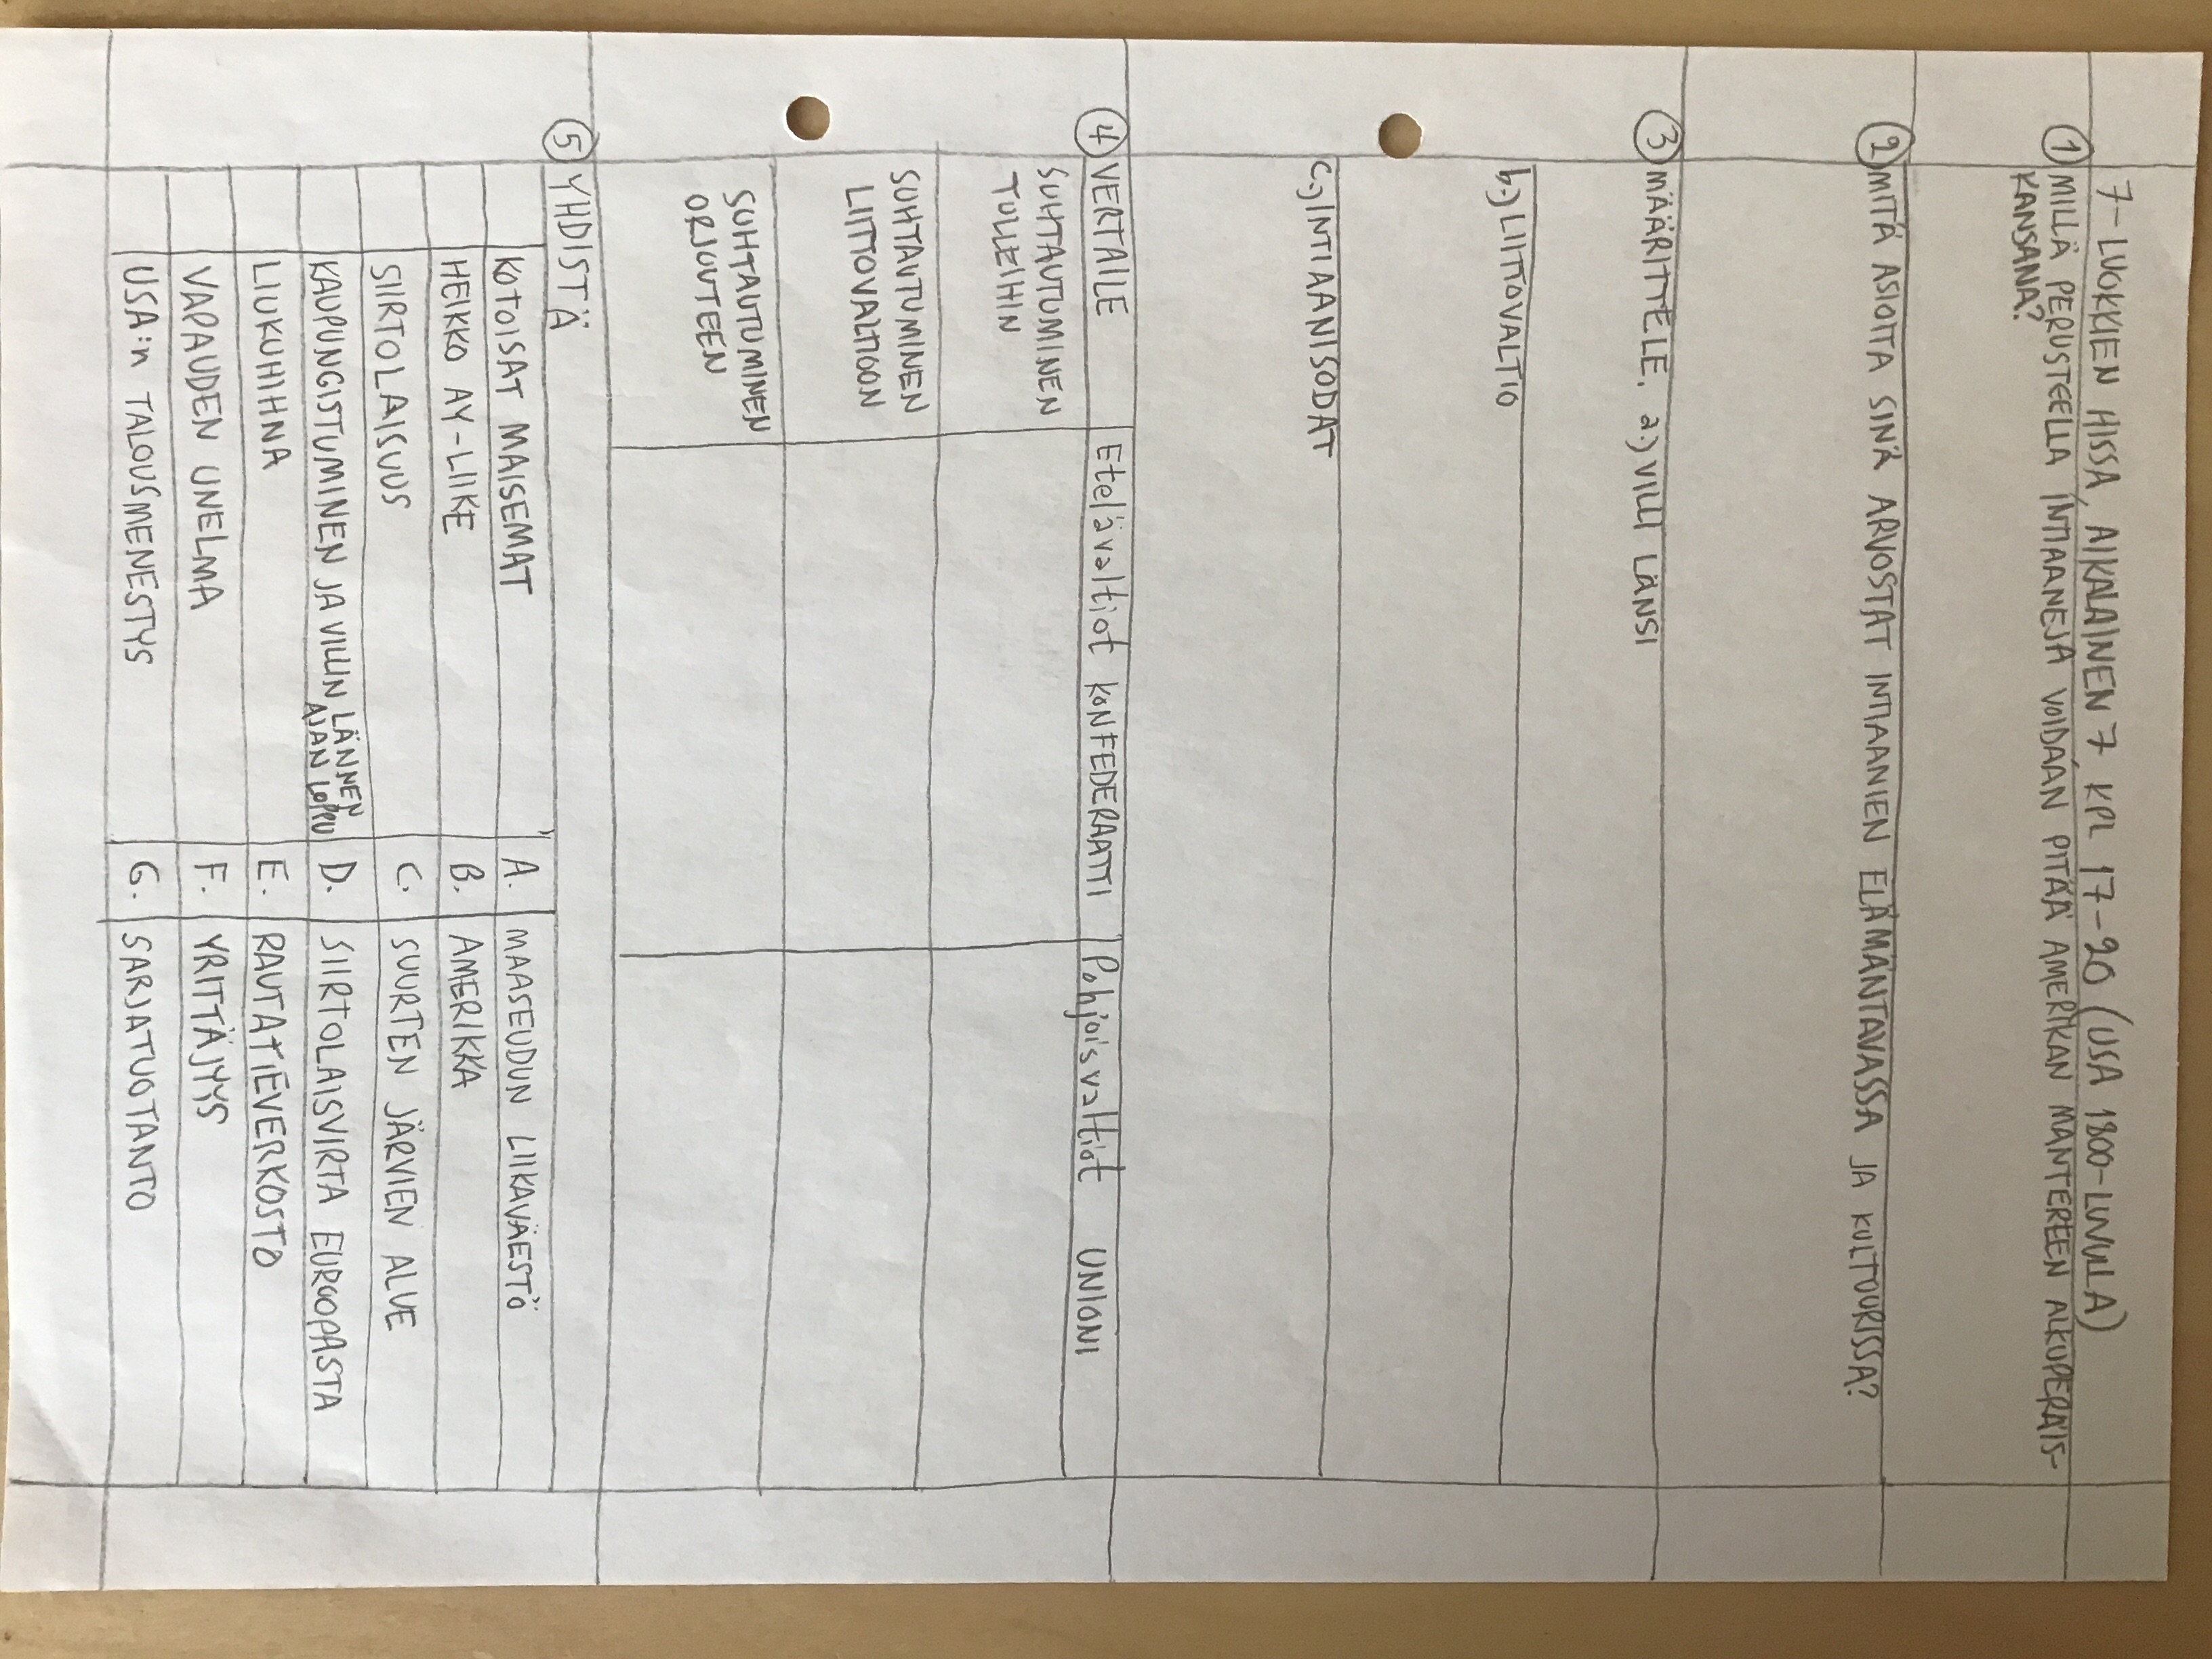 7-LUOKKIEN HISSA, AIKALAINEN 7 KPL 17-20 (USA 1800-LUVULLA)
① MILLÄ PERUSTEELLA INTIAANEJA VOIDAAN PITÄÄ AMERIKAN MANTEREEN ALKUPERÄIS-
KANSANA?
② MITÄ ASIOITA SINÄ ARVOSTAT INTIAANIEN ELÄMÄNTAVASSA JA KULTTUURISSA?
③ MÄÄRITTELE. a.) VILLI LÄNSI
b.) LIITTOVALTIO
c.) INTIAANISODAT
④ VERTAILE Etelävaltiot KONFEDERAATTI Pohjoisvaltiot UNIONI
SUHTAUTUMINEN
TULLEIHIN
SUHTAUTUMINEN
LIITTOVALTIOON
SUHTAUTUMINEN
ORJUUTEEN
⑤ YHDISTÄ
KOTOISAT MAISEMAT A. MAASEUDUN LIIKAVÄESTÖ
HEIKKO AY-LIIKE B. AMERIKKA
SIIRTOLAISUUS C. SUURTEN JÄRVIEN ALUE
KAUPUNGISTUMINEN JA VILLIN LÄNNEN D. SIIRTOLAISVIRTA EUROOPASTA
AJAN LOPPU
LIUKUHIHNA E. RAUTATIEVERKOSTO
VAPAUDEN UNELMA F. YRITTÄJYYS
USA:n TALOUSMENESTYS G. SARJATUOTANTO